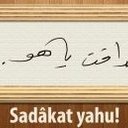 داقت یا هو
Sadâkat yahu!